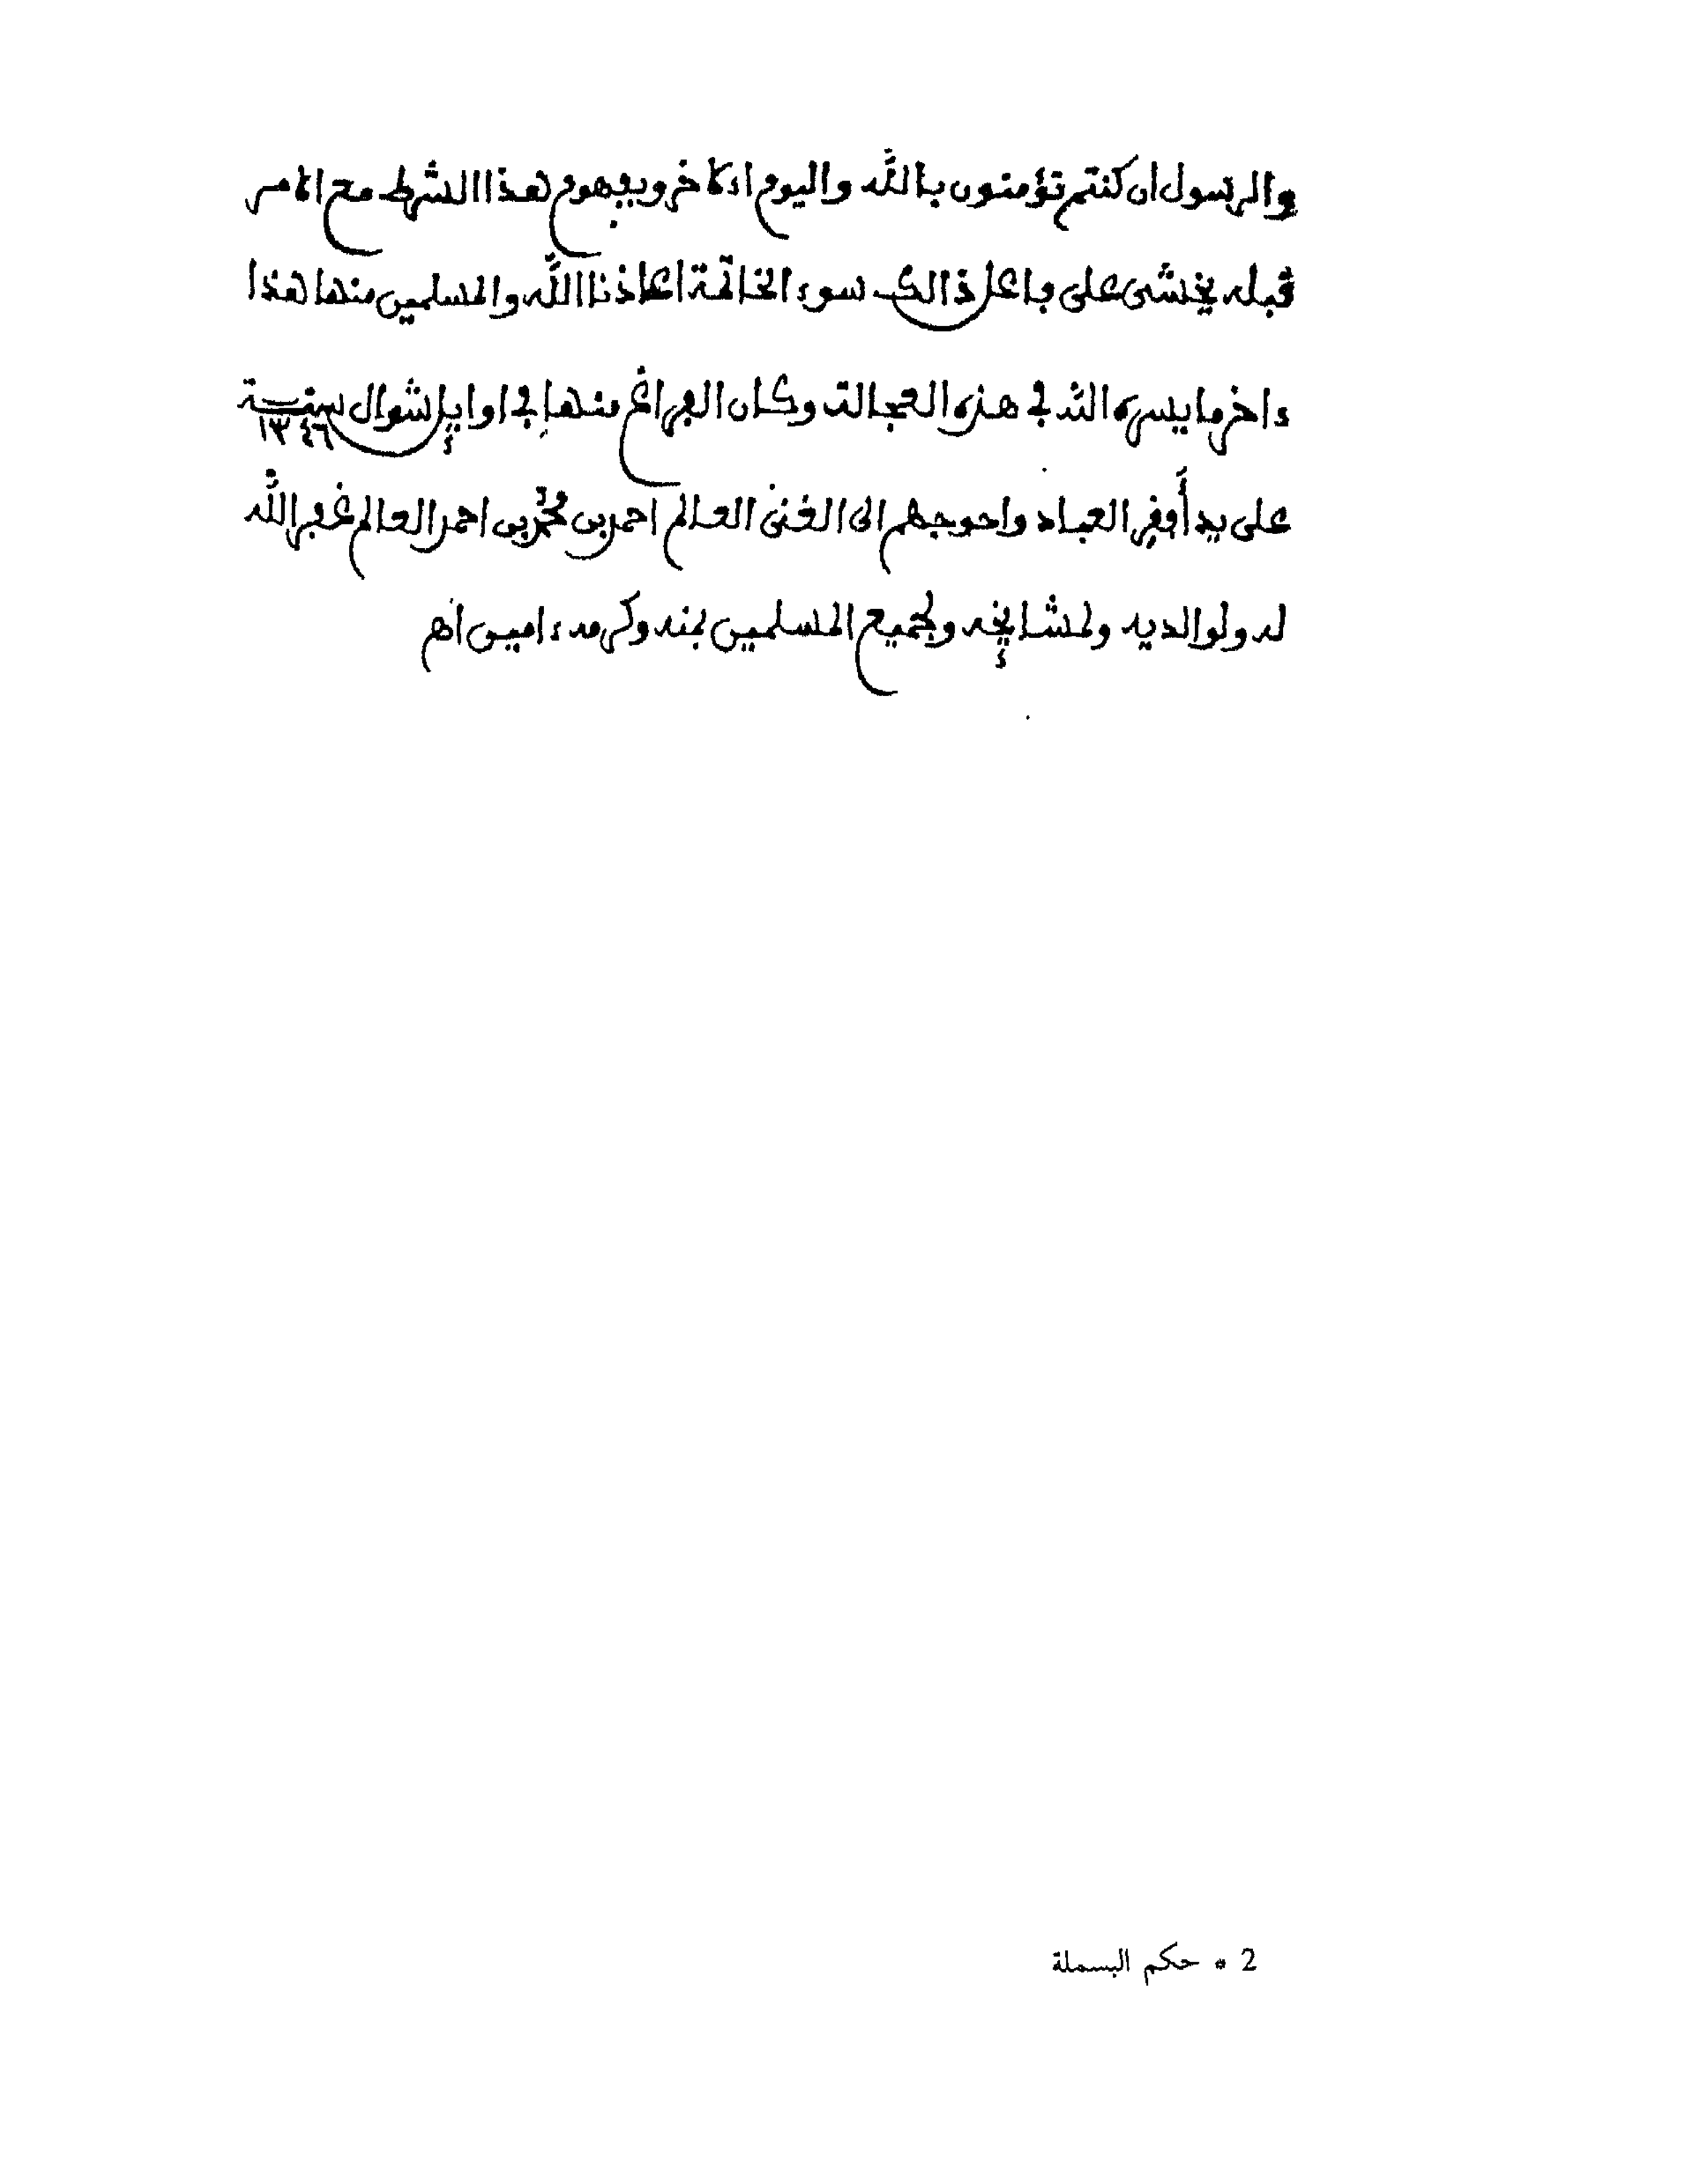 والرسول ان كنتم تؤمنون بالله واليوم الاخر وبمفهوم هذا الشرط مع الامر
قبله يخشى على فاعل ذالك سوء الخاتمة اعاذنا الله والمسلمين منها هذا
ءاخر ما يسره الله في هذه العجالة وكان الفراغ منها في اوايل شوال سنة ١٣٤٦
على يد أفقر العباد واحوجهم الى الغنى العالم احمد بن محمد بن احمد العالم غفر الله
له ولوالديه ولمشايخه ولجميع المسلمين بمنه وكرمه ءامين اهـ
2 * حكم البسملة